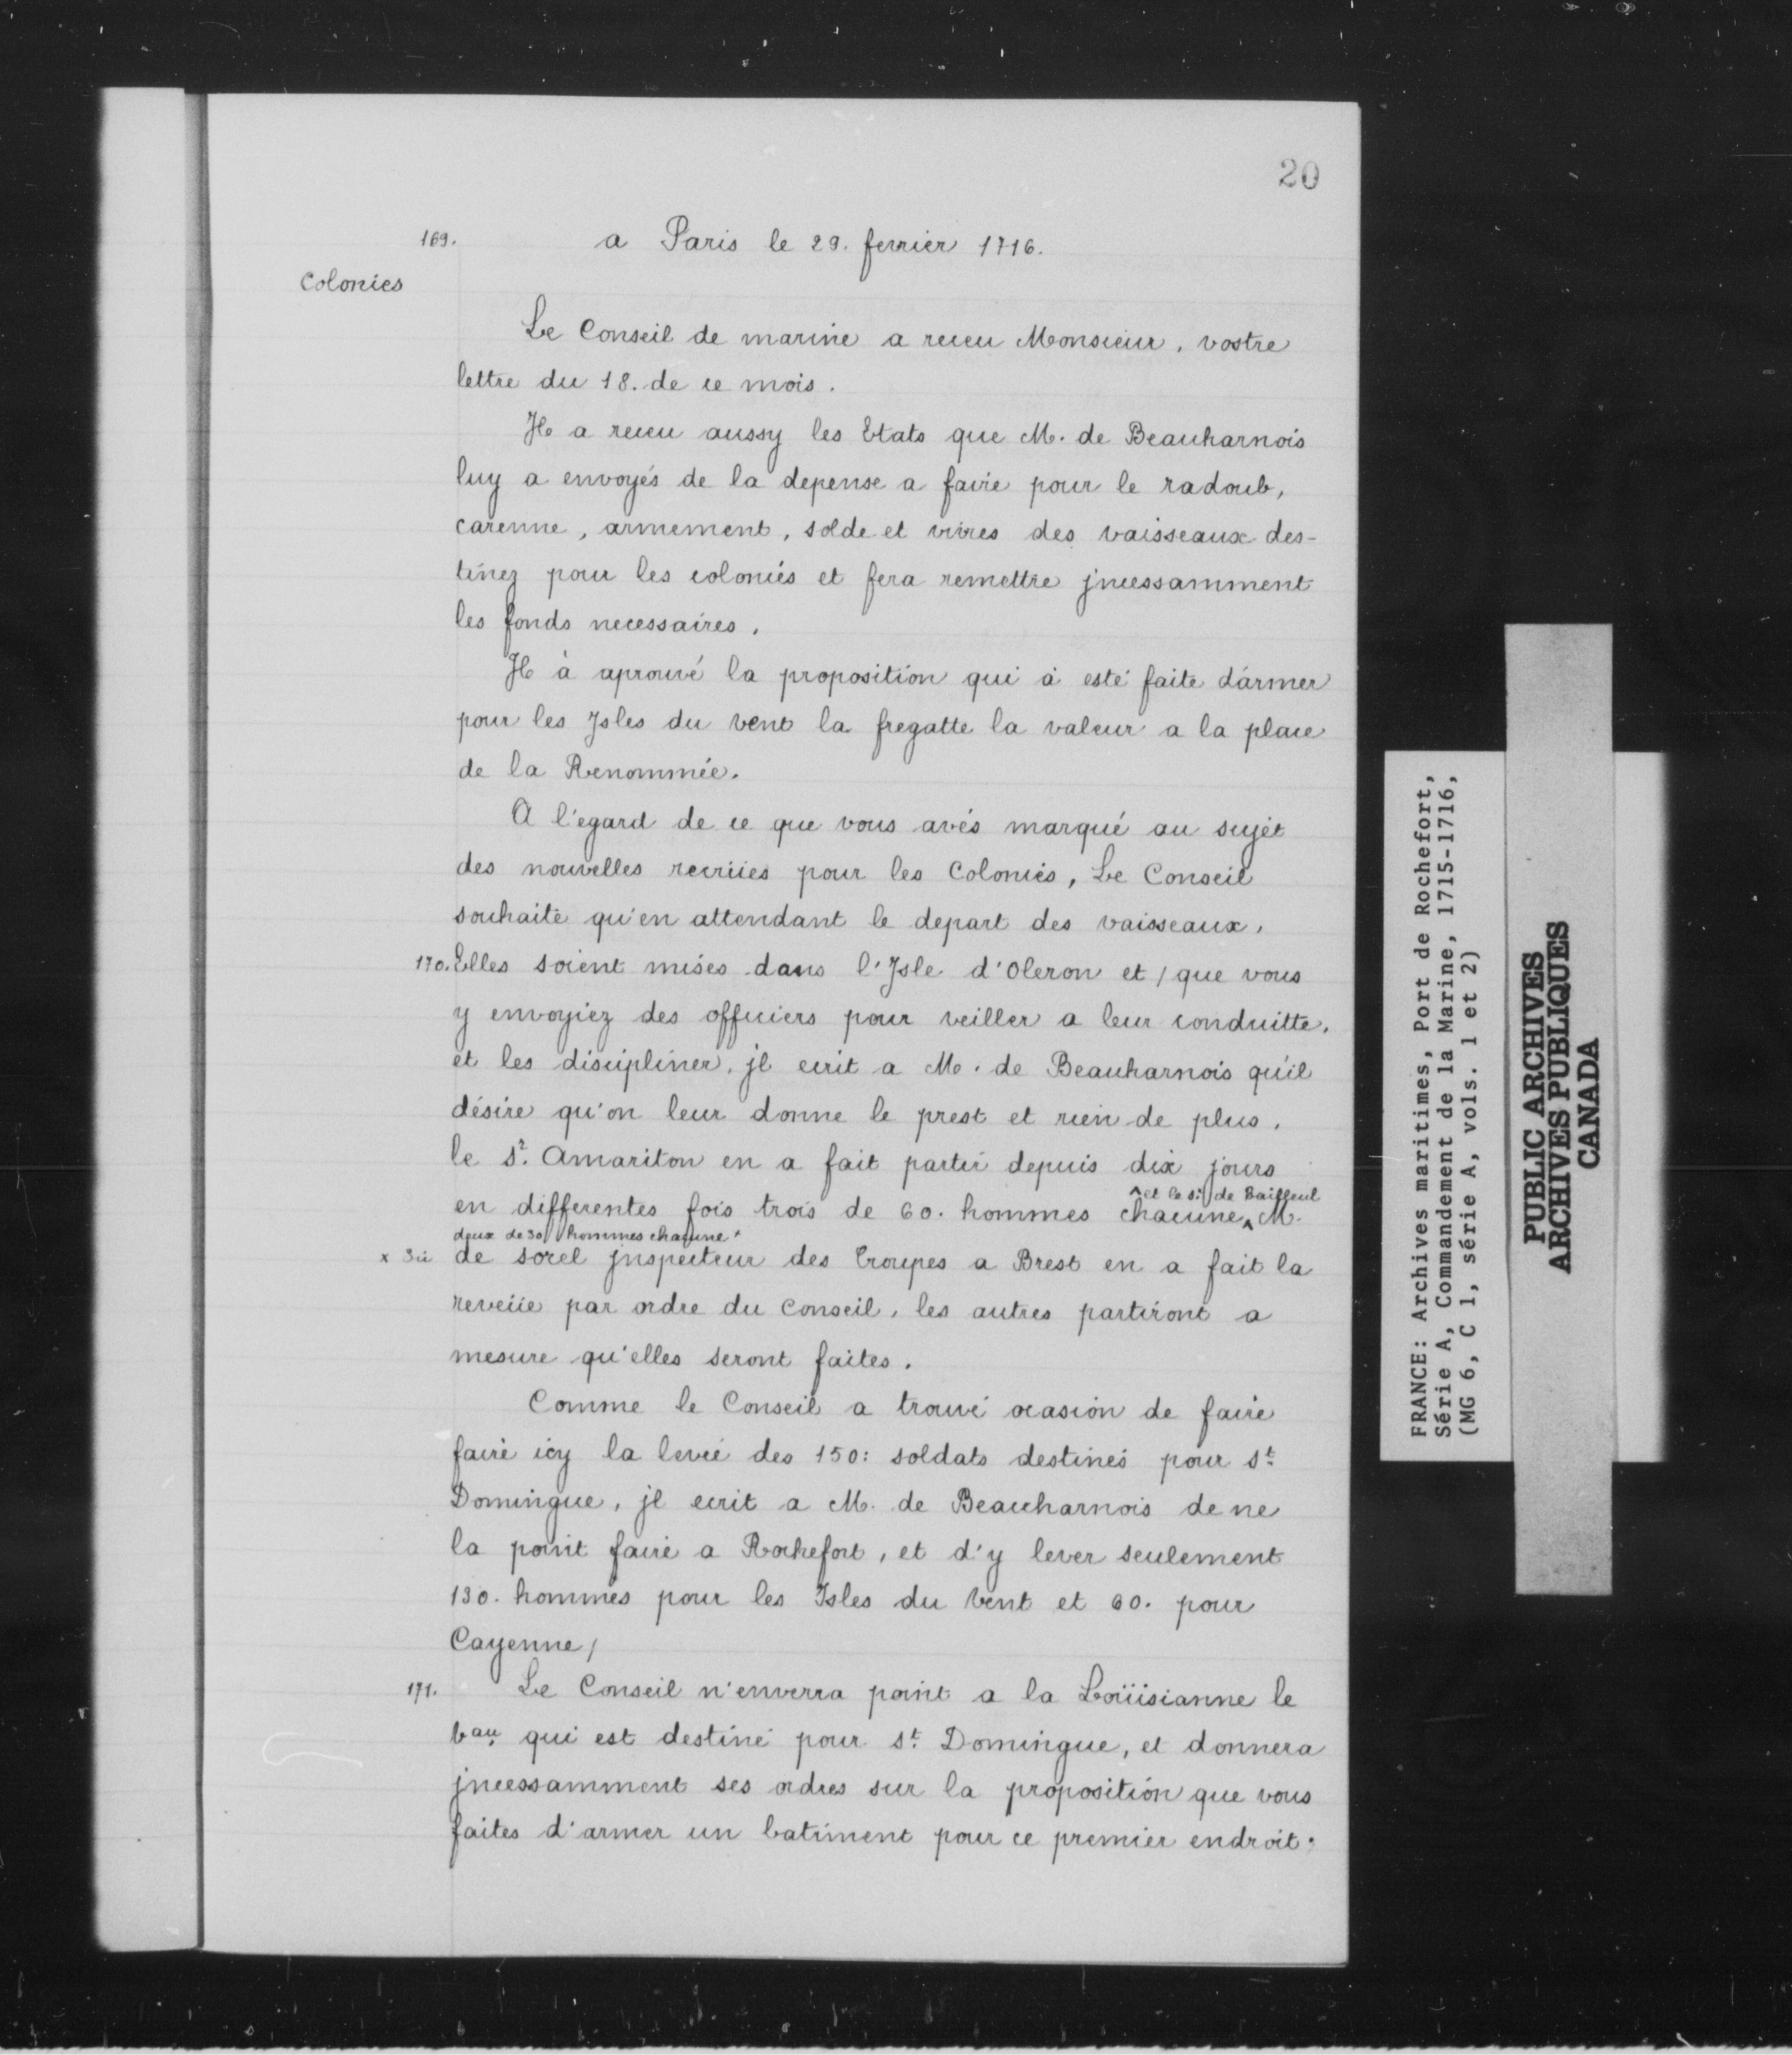 20
169. a Paris le 29. fevrier 1716.
Colonies
Le Conseil de marine a receu Monsieur, vostre
lettre du 18. de ce mois.
Il a receu aussy les Etats que M. de Beauharnois
luy a envoyés de la depense a faire pour le radoub,
carenne, armement, solde et vivres des vaisseaux des-
tinez pour les colonies et fera remettre jncessamment
les fonds necessaires.
Il à aprouvé la proposition qui à esté faite d'armer
pour les Isles du vent la fregatte la valeur a la place
de la Renommée.
A l'egard de ce que vous avés marqué au sujet
des nouvelles recrües pour les Colonies, Le Conseil
souhaite qu'en attendant le depart des vaisseaux,
170. Elles soient mises dans l'Isle d'Oleron et / que vous
y envoyiez des officiers pour veiller a leur conduitte,
et les discipliner, jl ecrit a M. de Beauharnois qu'il
désire qu'on leur donne le prest et rien de plus,
le Sr. Amariton en a fait partir depuis dix jours
^ et le Sr. de Bailleul
en differentes fois trois de 60. hommes chacune ^ M.
deux de 30 hommes chacune x
x de sorel jnspecteur des troupes a Brest en a fait la
reveüe par ordre du Conseil, les autres partiront a
mesure qu'elles seront faites.
Comme le Conseil a trouvé ocasion de faire
faire icy la levée des 150: soldats destinés pour St.
Domingue, jl ecrit a M. de Beauharnois de ne
la point faire a Rochefort, et d'y lever seulement
130. hommes pour les Isles du Vent et 60. pour
Cayenne /
171. Le Conseil n'enverra point a la Loüisianne le
bau. qui est destiné pour St. Domingue, et donnera
jncessamment ses ordres sur la proposition que vous
faites d'armer un batiment pour ce premier endroit;
FRANCE: Archives maritimes, Port de Rochefort,
Série A, Commandement de la Marine, 1715-1716,
(MG 6, C 1, série A, vols. 1 et 2)
PUBLIC ARCHIVES
ARCHIVES PUBLIQUES
CANADA